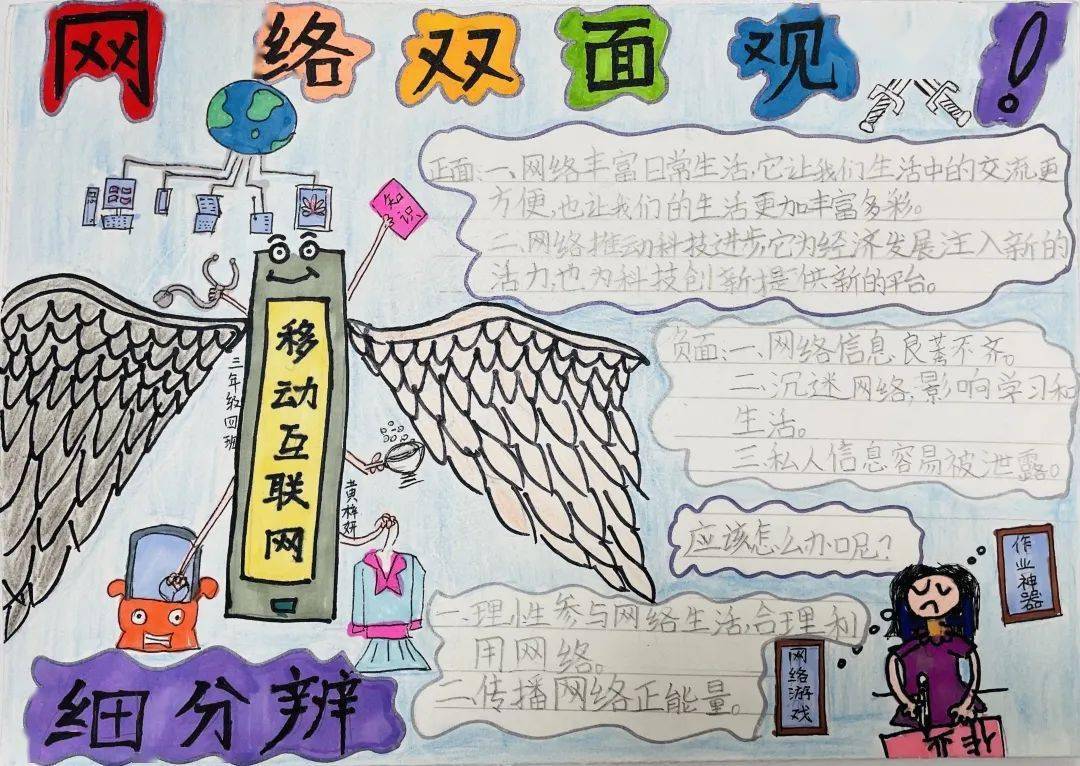 网络双面观!
正面:一、网络丰富日常生活,它让我们生活中的交流更
方便,也让我们的生活更加丰富多彩。
二、网络推动科技进步,它为经济发展注入新的
活力,也为科技创新提供新的平台。
知识
移动互联网
三年级四班
黄梓妍
负面:一、网络信息良莠不齐。
二、沉迷网络,影响学习和
生活。
三、私人信息容易被泄露。
应该怎么办呢?
作业神器
一、理性参与网络生活,合理利
用网络。
二、传播网络正能量。
网络游戏
作业
细分辨